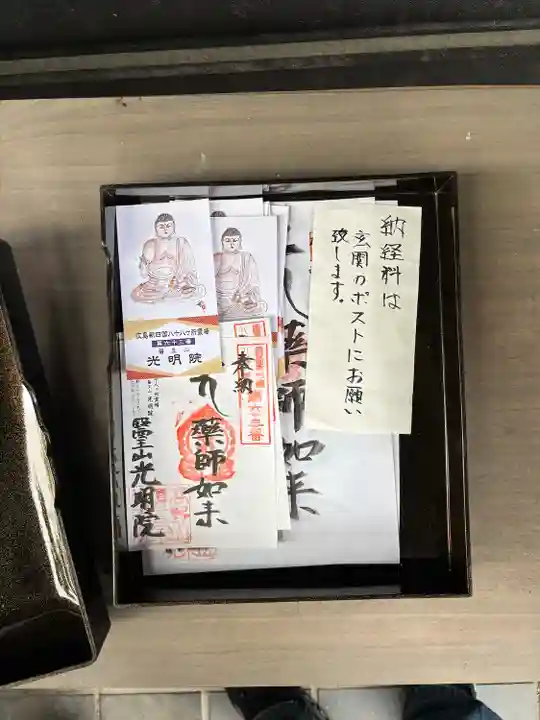 納経料は
玄関のポストにお願い
致します。
広島新四国八十八ヶ所霊場
第六十三番
醫王山
光明院
奉納
第六十三番
薬師如来
醫王山光明院
薬師如来